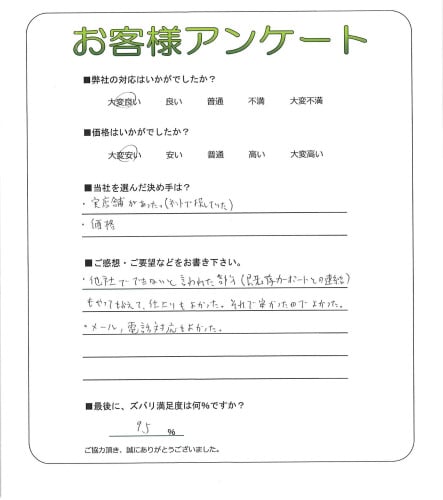 お客様アンケート
■弊社の対応はいかがでしたか？
大変良い 良い 普通 不満 大変不満
■価格はいかがでしたか？
大変安い 安い 普通 高い 大変高い
■当社を選んだ決め手は？
・実店舗があった。(ネットで探していた)
・価格
■ご感想・ご要望などをお書き下さい。
・他社でできないと言われた部分(既存カーポートとの連結)
もやってもらえて、仕上りもよかった。それで安かったのでよかった。
・メール，電話対応もよかった。
■最後に、ズバリ満足度は何%ですか？
95 %
ご協力頂き、誠にありがとうございました。